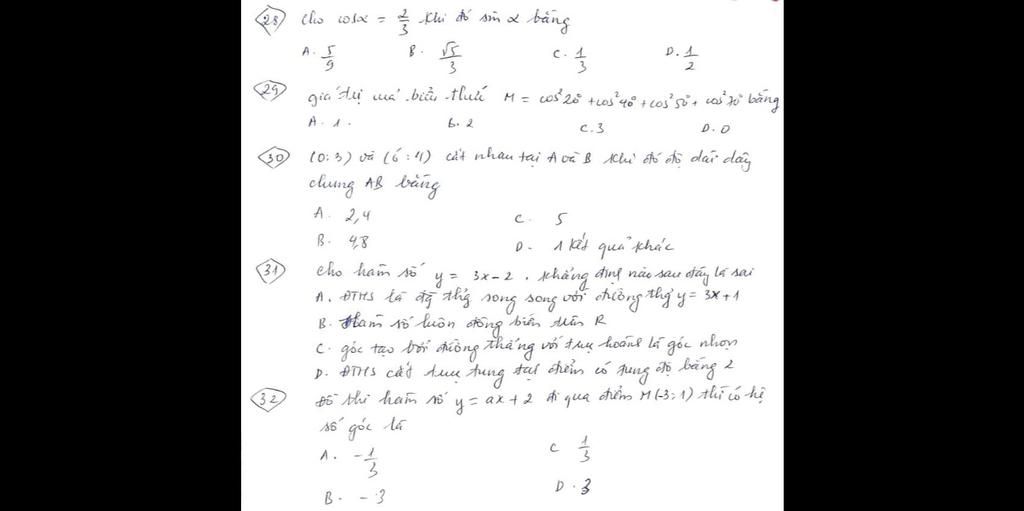 28 Cho cosα = 2/3 khi đó sin α bằng
A. 5/9 B. √5/3 C. 1/3 D. 1/2
29 giá trị của biểu thức M = cos²20° + cos²40° + cos²50° + cos²70° bằng
A. 1. B. 2 C. 3 D. 0
30 (O; 3) và (O'; 4) cắt nhau tại A và B khi đó độ dài dây
chung AB bằng
A. 2,4 C. 5
B. 4,8 D. 1 kết quả khác
31 Cho hàm số y = 3x - 2. Khẳng định nào sau đây là sai
A. ĐTHS là đg thg song song với đường thg y = 3x + 1
B. Hàm số luôn đồng biến trên R
C. góc tạo bởi đường thẳng với trục hoành là góc nhọn
D. ĐTHS cắt trục tung tại điểm có tung độ bằng 2
32 Đồ thị hàm số y = ax + 2 đi qua điểm M(-3; 1) thì có hệ
số góc là
A. -1/3 C 1/3
B. -3 D. 3